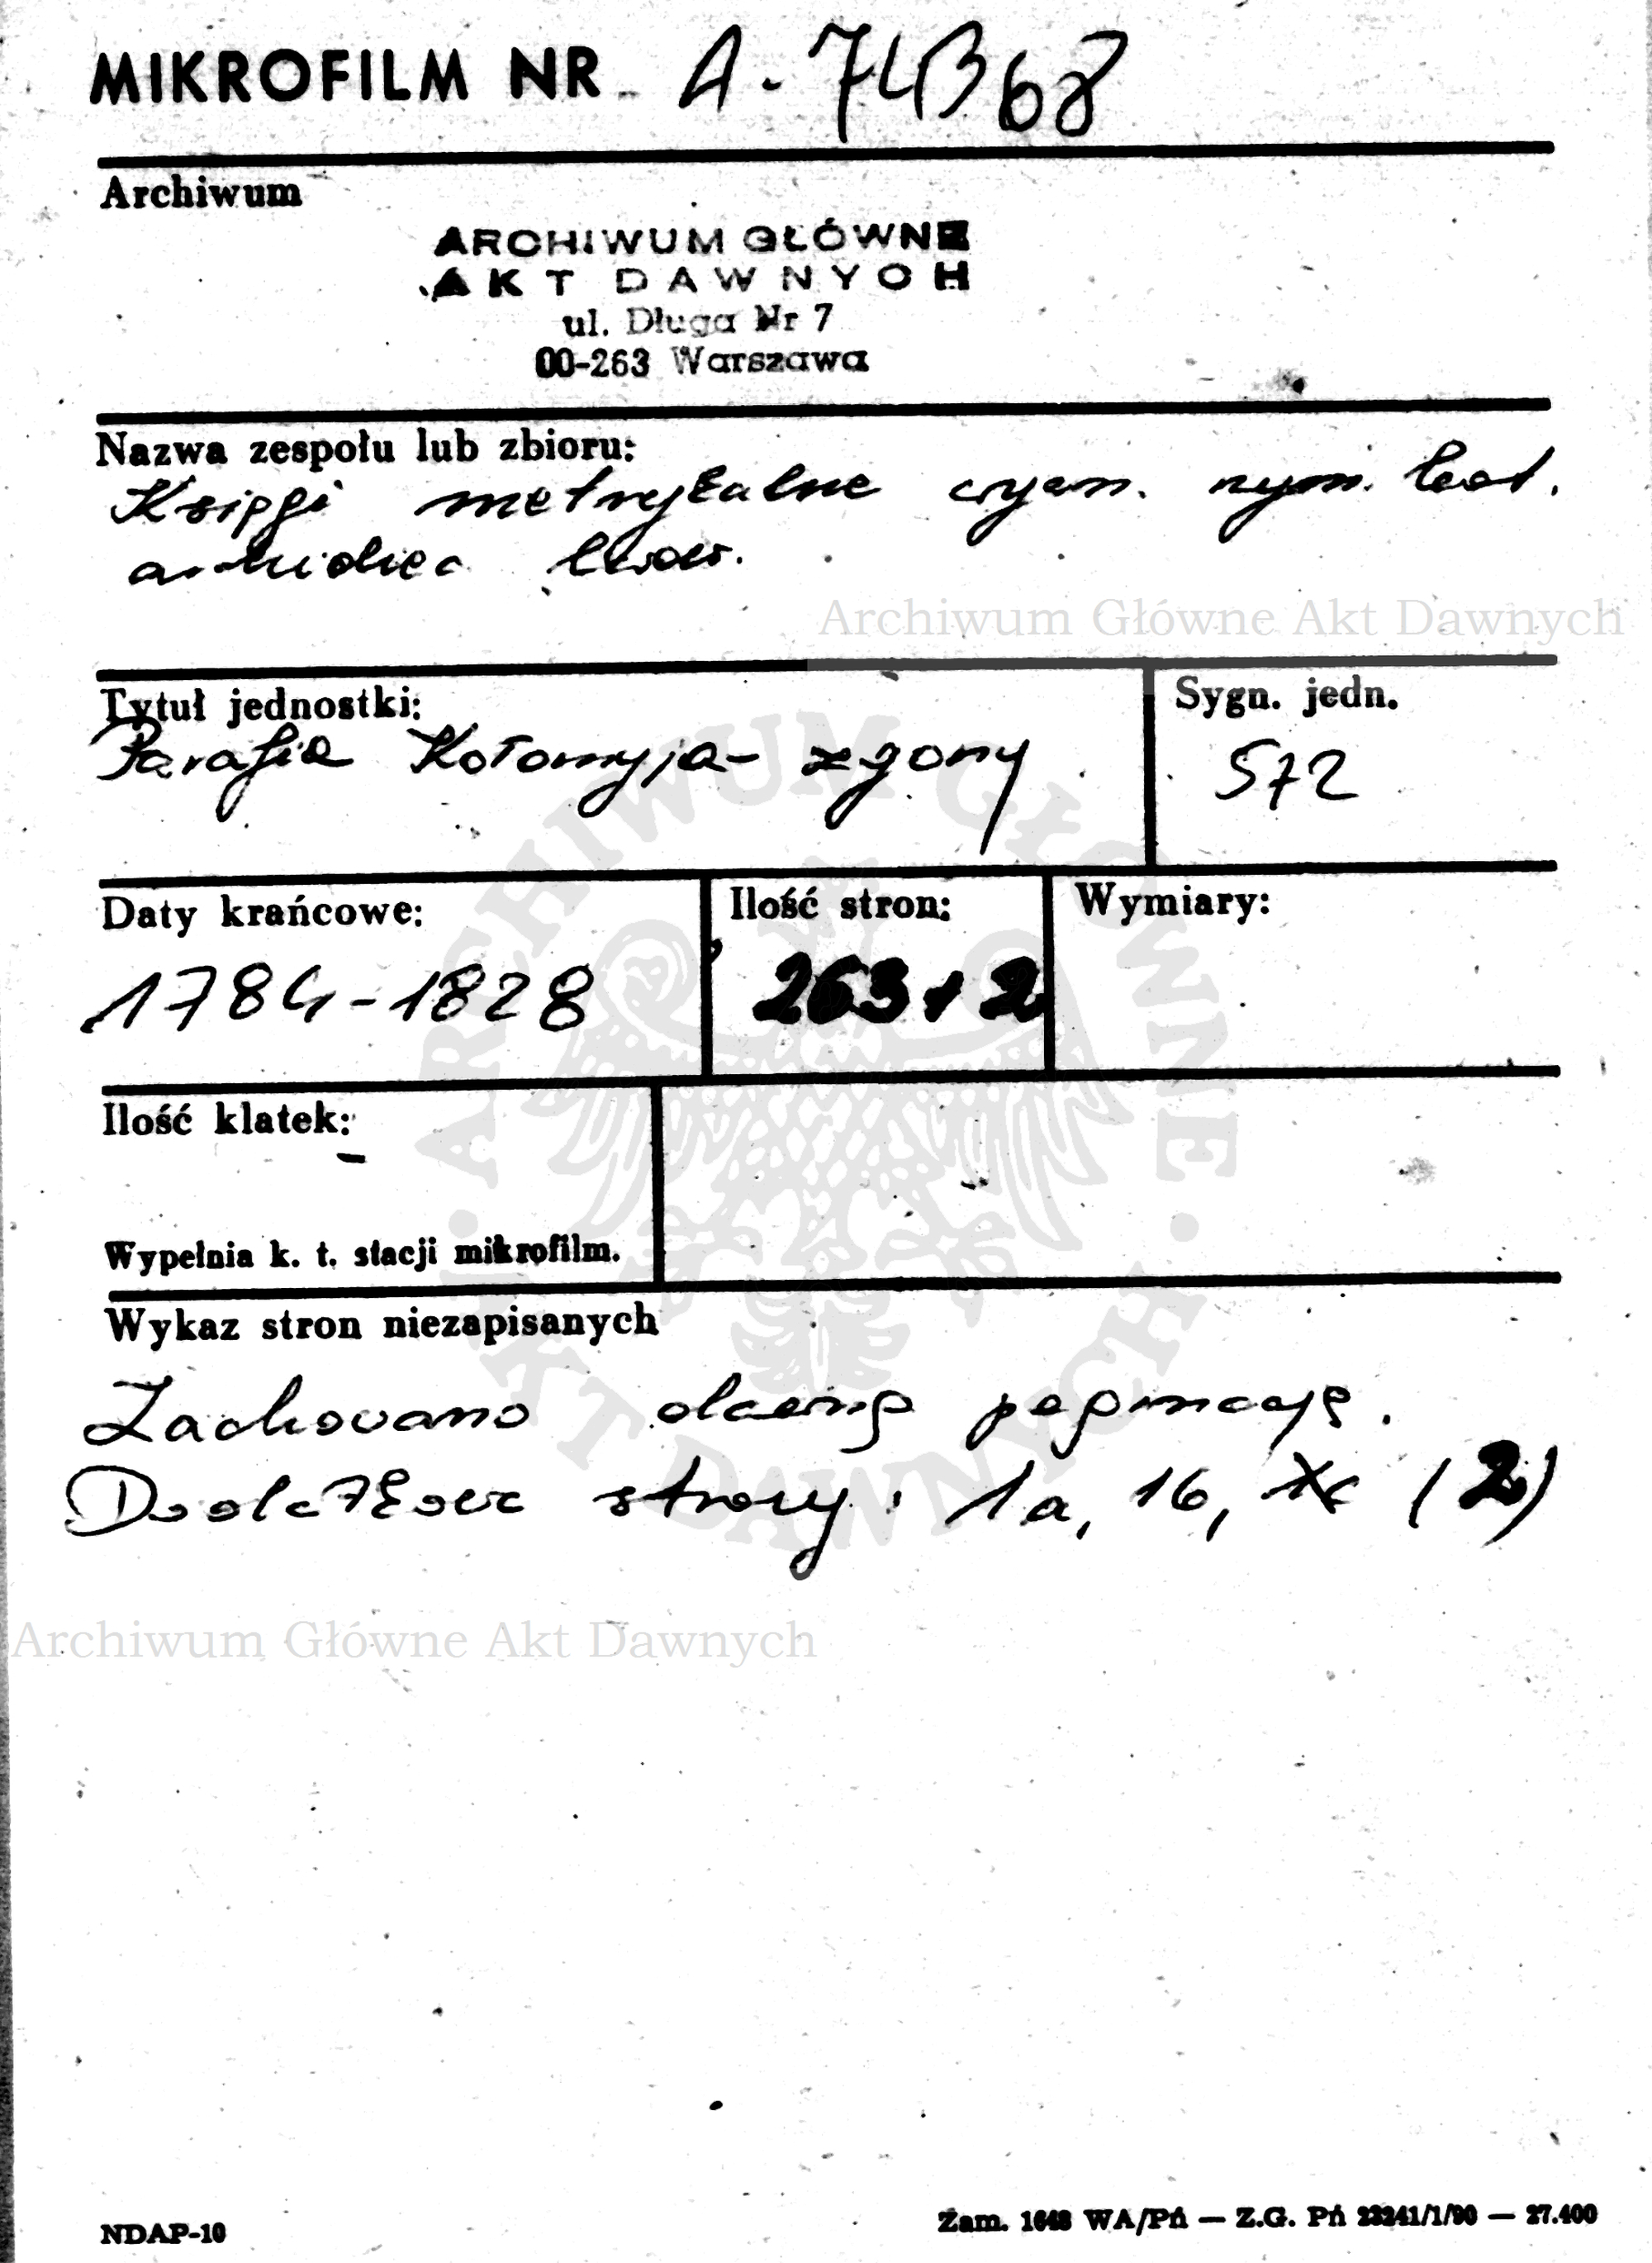 MIKROFILM NR A-74368
Archiwum
ARCHIWUM GŁÓWNE
AKT DAWNYCH
ul. Długa Nr 7
00-263 Warszawa
Nazwa zespołu lub zbioru:
Księgi metrykalne rzym. kat.
archidiec lwow.
Archiwum Główne Akt Dawnych
Tytuł jednostki:
Parafia Kołomyja - zgony
Sygn. jedn.
572
Daty krańcowe:
1784-1828
Ilość stron:
263+2
Wymiary:
Ilość klatek:
Wypełnia k. t. stacji mikrofilm.
Wykaz stron niezapisanych
Zachowano dawną paginację.
Dodatkowe strony: 1a, 1b, (2)
ARCHIWUM GŁÓWNE · AKT DAWNYCH ·
Archiwum Główne Akt Dawnych
NDAP-10
Zam. 1648 WA/Pń — Z.G. Pń /1/90 — 27.400